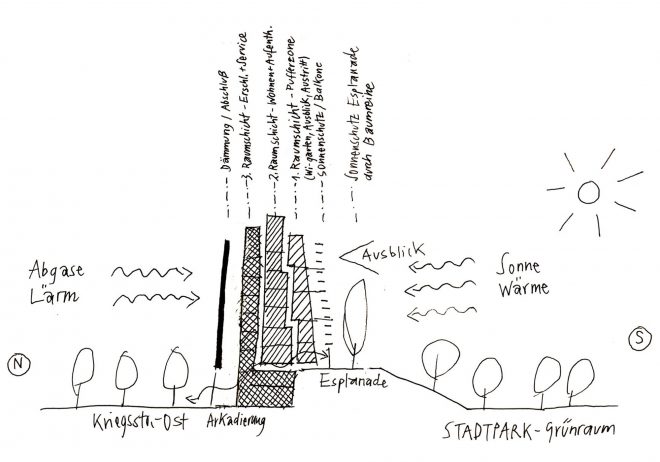 Dämmung / Abschluß
3. Raumschicht - Erschl. + Service
2. Raumschicht - Wohnen + Aufenth.
1. Raumschicht - Pufferzone
(Wi-garten, Ausblik, Austritt)
Sonnenschutz / Balkone
Sonnenschutz Esplanade
durch Baumreihe
Abgase
Lärm
Ausblick
Sonne
Wärme
N
S
Esplanade
Kriegsstr.-Ost
Arkadierung
STADTPARK - Grünraum